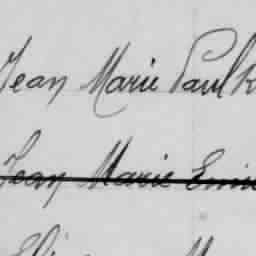 Jean Marie Paulk
Jean Marie Emi